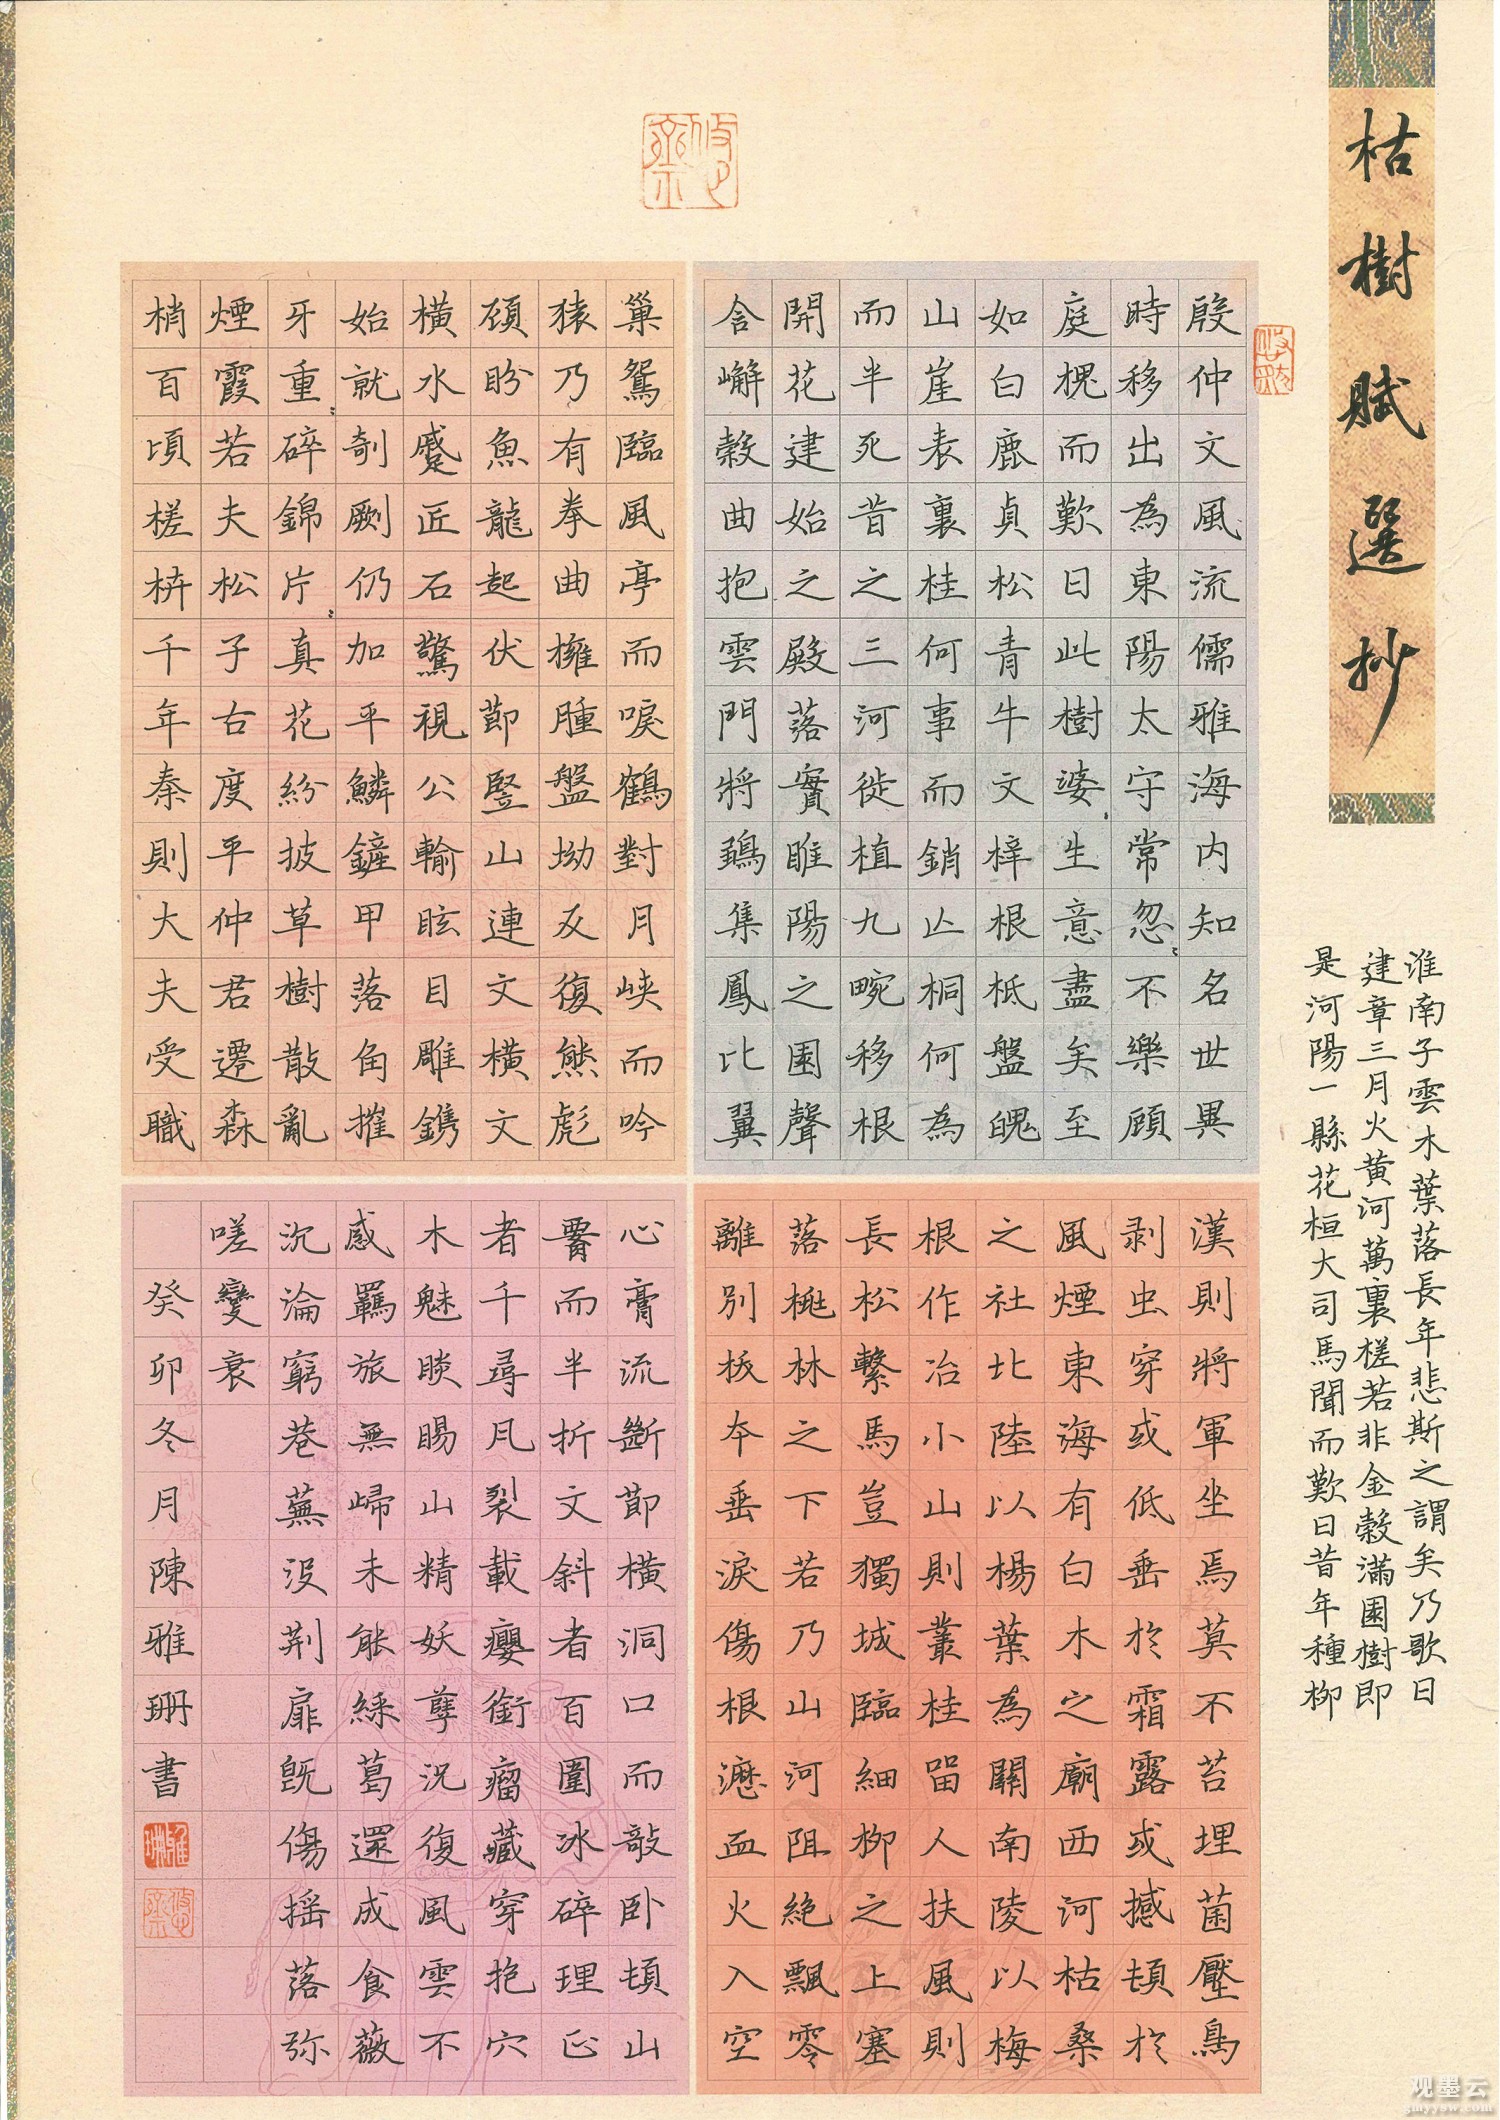 枯樹賦選抄
殷仲文風流儒雅海内知名世異
時移出為東陽太守常忽不樂顧
庭槐而歎曰此樹婆生意盡矣至
如白鹿貞松青牛文梓根柢盤魄
山崖表裏桂何事而銷亾桐何為
而半死昔之三河徙植九畹移根
開花建始之殿落實睢陽之園聲
含嶰穀曲抱雲門將鵷集鳳比翼
巢鴛臨風亭而唳鶴對月峽而吟
猿乃有拳曲擁腫盤坳反復熊彪
頋盼魚龍起伏節豎山連文橫文
橫水蹙匠石驚視公輸眩目雕鐫
始就剞劂仍加平鱗鏟甲落角摧
牙重碎錦片真花紛披草樹散亂
煙霞若夫松子古度平仲君遷森
梢百頃槎枿千年秦則大夫受職
漢則將軍坐焉莫不苔埋菌壓鳥
剥虫穿或低垂於霜露或撼頓於
風煙東海有白木之廟西河枯桑
之社北陸以楊葉為關南陵以梅
根作冶小山則叢桂留人扶風則
長松繫馬豈獨城臨細柳之上塞
落桃林之下若乃山河阻絶飄零
離別拔本垂淚傷根瀝血火入空
心膏流斷節橫洞口而敧卧頓山
要而半折文斜者百圍冰碎理正
者千尋瓦裂載癭銜瘤藏穿抱穴
木魅睒睗山精妖孽況復風雲不
感羈旅無歸未能採葛還成食薇
沉淪窮巷蕪没荆扉既傷揺落弥
嗟變衰
癸卯冬月陳雅珊書
淮南子雲木葉落長年悲斯之謂矣乃歌曰
建章三月火黄河萬裏槎若非金穀滿園樹即
是河陽一縣花桓大司馬聞而歎曰昔年種柳
雅珊
观墨云
jmyysw.com